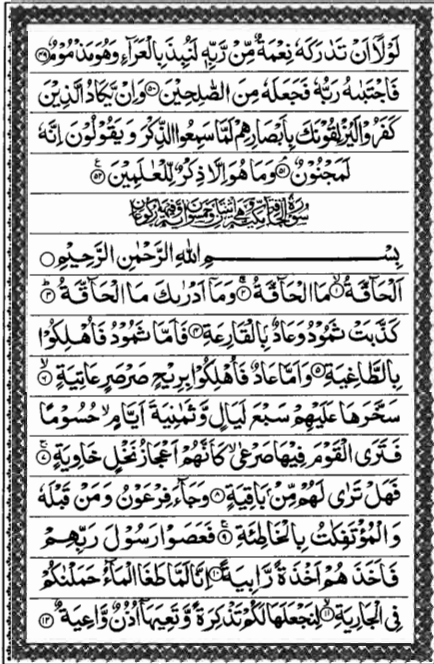 لَوْلَآ اَنْ تَدٰرَكَهٗ نِعْمَةٌ مِّنْ رَّبِّهٖ لَنُبِذَ بِالْعَرَآءِ وَهُوَ مَذْمُوْمٌ ﴿۴۹﴾
فَاجْتَبٰىهُ رَبُّهٗ فَجَعَلَهٗ مِنَ الصّٰلِحِيْنَ ﴿۵۰﴾ وَاِنْ يَّكَادُ الَّذِيْنَ
كَفَرُوْا لَيُزْلِقُوْنَكَ بِاَبْصَارِهِمْ لَمَّا سَمِعُوا الذِّكْرَ وَ يَقُوْلُوْنَ اِنَّهٗ
لَمَجْنُوْنٌ ﴿۵۱﴾ وَمَا هُوَ اِلَّا ذِكْرٌ لِّلْعٰلَمِيْنَ ﴿۵۲﴾
بِسْمِ اللهِ الرَّحْمٰنِ الرَّحِيْمِ
اَلْحَآقَّةُ ﴿۱﴾ مَا الْحَآقَّةُ ﴿۲﴾ وَمَآ اَدْرٰىكَ مَا الْحَآقَّةُ ﴿۳﴾
كَذَّبَتْ ثَمُوْدُ وَعَادٌۢ بِالْقَارِعَةِ ﴿۴﴾ فَاَمَّا ثَمُوْدُ فَاُهْلِكُوْا
بِالطَّاغِيَةِ ﴿۵﴾ وَاَمَّا عَادٌ فَاُهْلِكُوْا بِرِيْحٍ صَرْصَرٍ عَاتِيَةٍ ﴿۶﴾
سَخَّرَهَا عَلَيْهِمْ سَبْعَ لَيَالٍ وَّثَمٰنِيَةَ اَيَّامٍ حُسُوْمًا
فَتَرَى الْقَوْمَ فِيْهَا صَرْعٰى كَاَنَّهُمْ اَعْجَازُ نَخْلٍ خَاوِيَةٍ ﴿۷﴾
فَهَلْ تَرٰى لَهُمْ مِّنْۢ بَاقِيَةٍ ﴿۸﴾ وَجَآءَ فِرْعَوْنُ وَمَنْ قَبْلَهٗ
وَالْمُؤْتَفِكٰتُ بِالْخَاطِئَةِ ﴿۹﴾ فَعَصَوْا رَسُوْلَ رَبِّهِمْ
فَاَخَذَهُمْ اَخْذَةً رَّابِيَةً ﴿۱۰﴾ اِنَّا لَمَّا طَغَا الْمَآءُ حَمَلْنٰكُمْ
فِى الْجَارِيَةِ ﴿۱۱﴾ لِنَجْعَلَهَا لَكُمْ تَذْكِرَةً وَّتَعِيَهَآ اُذُنٌ وَّاعِيَةٌ ﴿۱۲﴾